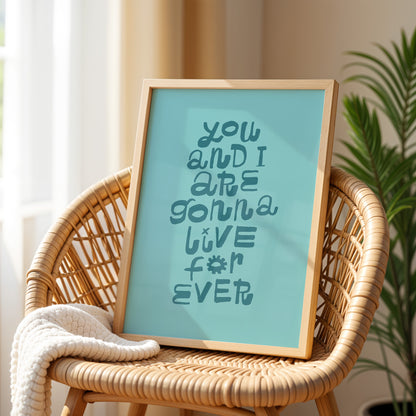 YOU
AND I
ARE
gonna
LIVE
for
EVER